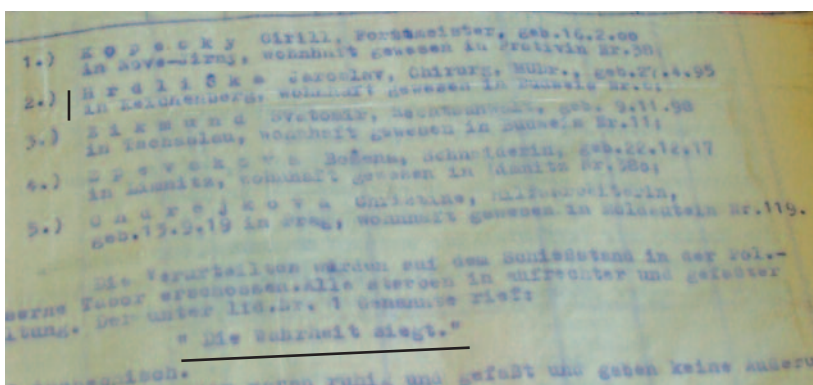 1.) K o p e c k y Cirill, Forstmeister, geb.16.2.00
in Nova-Biraj, wohnhaft gewesen in Protivin Nr.38;
2.) H r d l i š k a Jaroslav, Chirurg, MUDr., geb.27.4.95
in Reichenberg, wohnhaft gewesen in Budweis
3.) Z i k m u n d Svatomir, Rechtsanwalt, geb. 9.11.98
in Tschaslau, wohnhaft gewesen in Budweis Nr.11;
4.) S p e v a k o v a Božena, Schneiderin, geb.22.12.17
in wohnhaft gewesen in
5.) O n d r e j k o v a Christine, Hilfsarbeiterin,
geb.13.9.19 in Prag, wohnhaft gewesen in Nr.119.
Die Verurteilten wurden auf dem Schießstand in der Pol.-
serne Tabor erschossen.Alle starben in aufrechter und gefaßter
ltung. Der unter lfd.Nr. 1 Genannte rief:
" Die Wahrheit siegt."
waren ruhig und gefaßt und gaben keine Äußeru